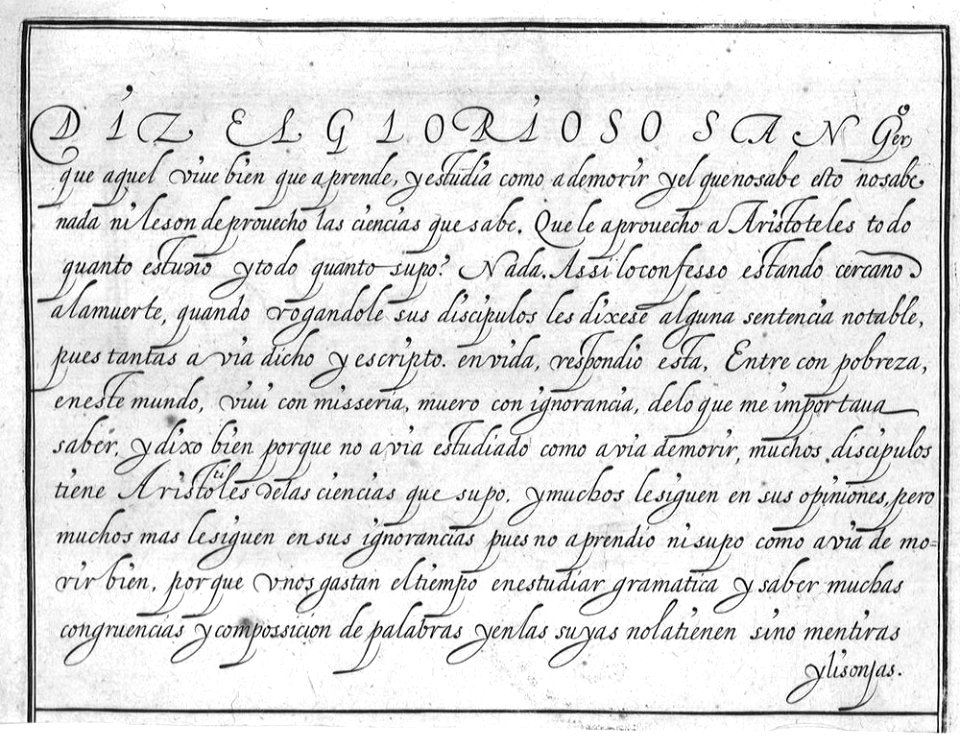 DIZ EL GLORIOSO SAN Gerº
que aquel viue bien que aprende, y estudia como a de morir y el que no sabe esto no sabe
nada ni le son de prouecho las ciencias que sabe. Que le aprouecho a Aristoteles todo
quanto estudio y todo quanto supo? Nada. Assi lo confesso estando cercano
a la muerte, quando rogandole sus discipulos les dixese alguna sentencia notable,
pues tantas avia dicho y escripto. en vida, respondio esta, Entre con pobreza,
en este mundo, viui con misseria, muero con ignorancia, de lo que me importaua
saber, y dixo bien porque no avia estudiado como avia de morir, muchos discipulos
tiene Aristotiles de las ciencias que supo. y muchos le siguen en sus opiniones, pero
muchos mas le siguen en sus ignorancias pues no aprendio ni supo como avia de mo=
rir bien, porque vnos gastan el tiempo en estudiar gramatica y saber muchas
congruencias y compossicion de palabras y en las suyas no la tienen sino mentiras
y lisonjas.